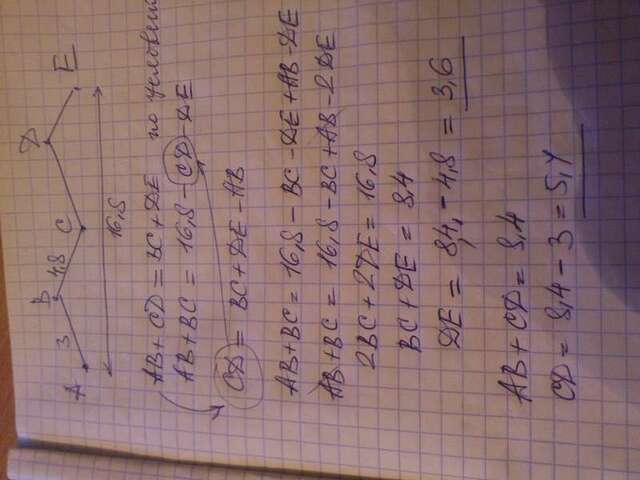 A 3 B 4,8 C D E
16,8
AB + CD = BC + DE по условию
AB + BC = 16,8 - CD - DE
CD = BC + DE - AB
AB + BC = 16,8 - BC - DE + AB - DE
AB + BC = 16,8 - BC + AB - 2DE
2BC + 2DE = 16,8
BC + DE = 8,4
DE = 8,4 - 4,8 = 3,6
AB + CD = 8,4
CD = 8,4 - 3 = 5,4